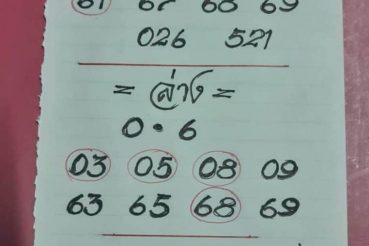 61 67 68 69
026 521
= ล่าง =
0 • 6
03 05 08 09
63 65 68 69